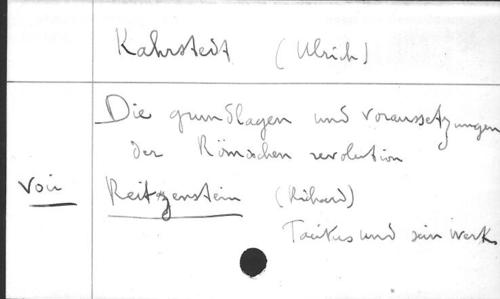 Kahrstedt (Ulrich)
Die grundlagen und voraussetzungen
der Römischen revolution
Voir Reitzenstein (Richard)
Tacitus und sein Werk